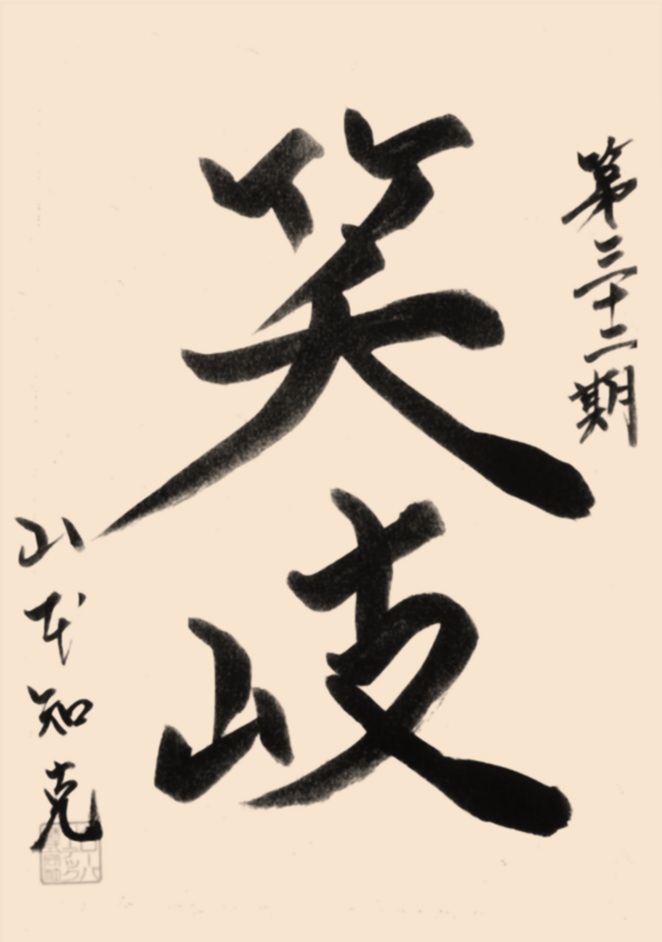 第三十二期
笑岐
山本知克